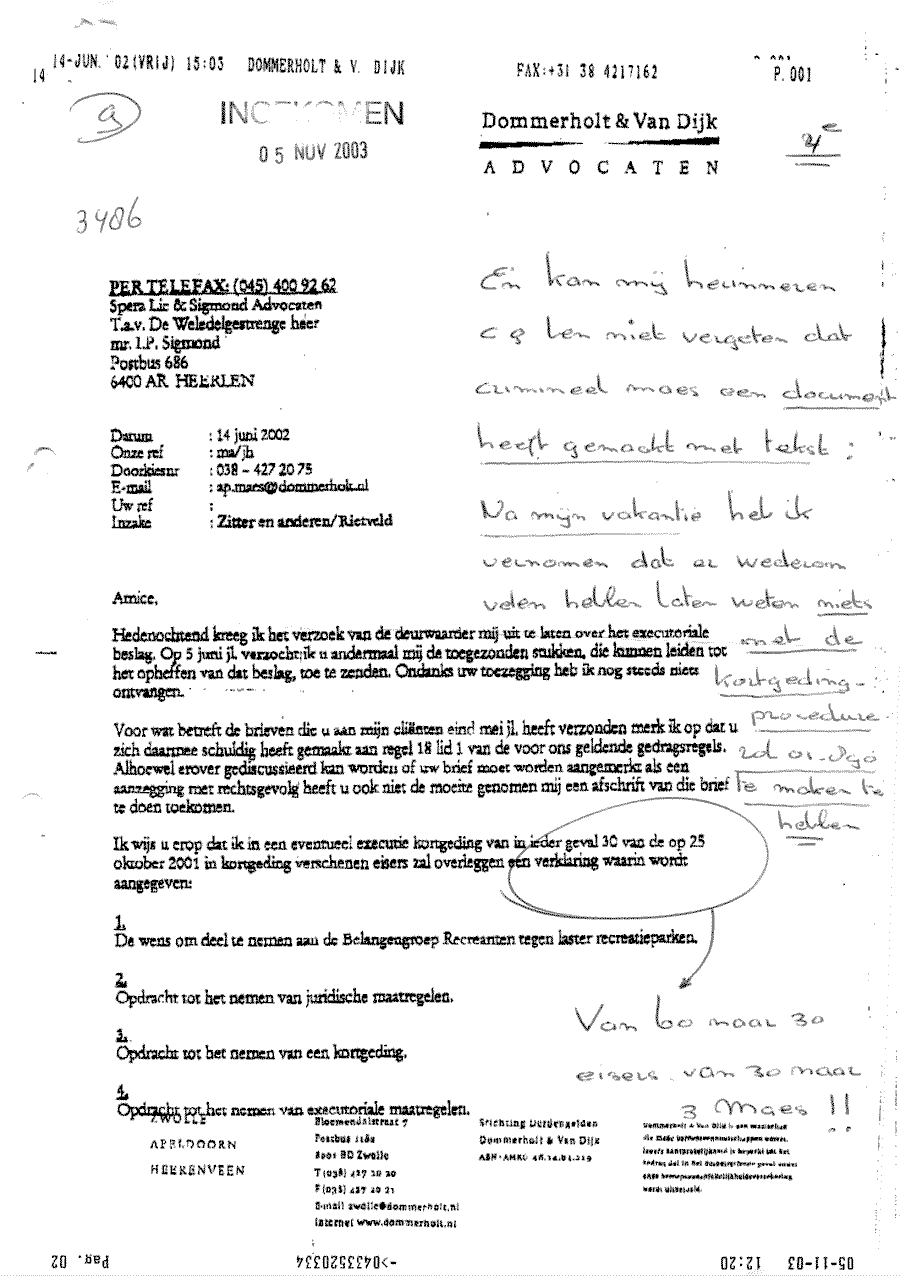 14-JUN. '02(VRIJ) 15:03 DOMMERHOLT & V. DIJK FAX:+31 38 4217162 P.001
14
a
INGEKOMEN
05 NOV 2003
Dommerholt & Van Dijk
ADVOCATEN
3486
PER TELEFAX: (045) 400 92 62
Spera Lic & Sigmond Advocaten
T.a.v. De Weledelgestrenge heer
mr. I.P. Sigmond
Postbus 686
6400 AR HEERLEN
Datum : 14 juni 2002
Onze ref : ma/jh
Doorkiesnr : 038 – 427 20 75
E-mail : ap.maes@dommerholt.nl
Uw ref :
Inzake : Zitter en anderen/Rietveld
En kan mij herinneren
cq ben niet vergeten dat
crimineel maes een document
heeft gemaakt met tekst :
Na mijn vakantie heb ik
vernomen dat er wederom
velen hebben laten weten niets
met de
kortgeding-
procedure
te maken te
hebben
Amice,
Hedenochtend kreeg ik het verzoek van de deurwaarder mij uit te laten over het executoriale
beslag. Op 5 juni jl. verzocht ik u andermaal mij de toegezonden stukken, die kunnen leiden tot
het opheffen van dat beslag, toe te zenden. Ondanks uw toezegging heb ik nog steeds niets
ontvangen.
Voor wat betreft de brieven die u aan mijn cliënten eind mei jl. heeft verzonden merk ik op dat u
zich daarmee schuldig heeft gemaakt aan regel 18 lid 1 van de voor ons geldende gedragsregels.
Alhoewel erover gediscussieerd kan worden of uw brief moet worden aangemerkt als een
aanzegging met rechtsgevolg heeft u ook niet de moeite genomen mij een afschrift van die brief
te doen toekomen.
Ik wijs u erop dat ik in een eventueel executie kortgeding van in ieder geval 30 van de op 25
oktober 2001 in kortgeding verschenen eisers zal overleggen een verklaring waarin wordt
aangegeven:
1.
De wens om deel te nemen aan de Belangengroep Recreanten tegen laster recreatieparken.
2.
Opdracht tot het nemen van juridische maatregelen.
3.
Opdracht tot het nemen van een kortgeding.
4.
Opdracht tot het nemen van executoriale maatregelen.
Van 60 naar 30
eisers. van 30 naar
3 Maes !!
ZWOLLE
APELDOORN
HEERENVEEN
Bloemendalstraat 7
Postbus 1182
8001 BD Zwolle
T (038) 427 20 20
F (038) 427 20 21
E-mail zwolle@dommerholt.nl
Internet www.dommerholt.nl
Stichting Derdengelden
Dommerholt & Van Dijk
ABN-AMRO
Dommerholt & Van Dijk is een maatschap
05-11-03 12:20 ->0433520334 Pag. 02